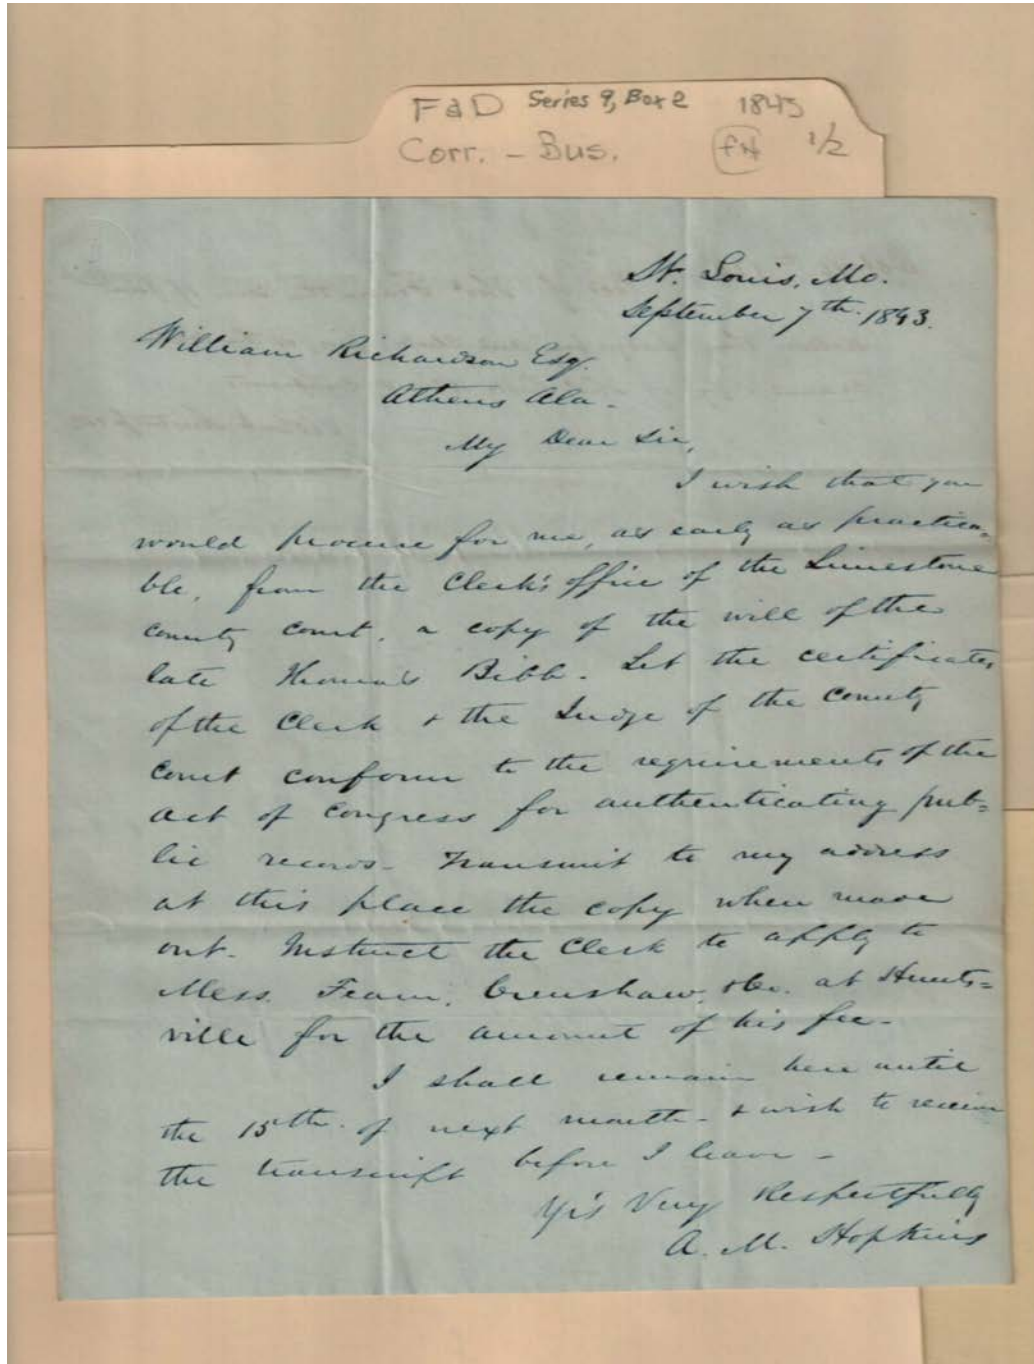 F&D Series 9, Box 2 1843
Corr. - Bus. 1/2
St. Louis, Mo.
September 7th. 1843.
William Richardson Esq.
Athens Ala.
My Dear Sir,
I wish that you
would procure for me, as early as practica-
ble, from the Clerk's office of the Limestone
county court, a copy of the will of the
late Thomas Bibb. Let the certificates
of the Clerk & the Judge of the County
Court conform to the requirements of the
act of Congress for authenticating pub=
lic records. Transmit to my address
at this place the copy when made
out. Instruct the Clerk to apply to
Mess. Fearn, Crenshaw, &Co. at Hunts=
ville for the amount of his fee.
I shall remain here until
the 15th. of next month - & wish to receive
the transcript before I leave -
Yrs Very Respectfully
A. M. Hopkins